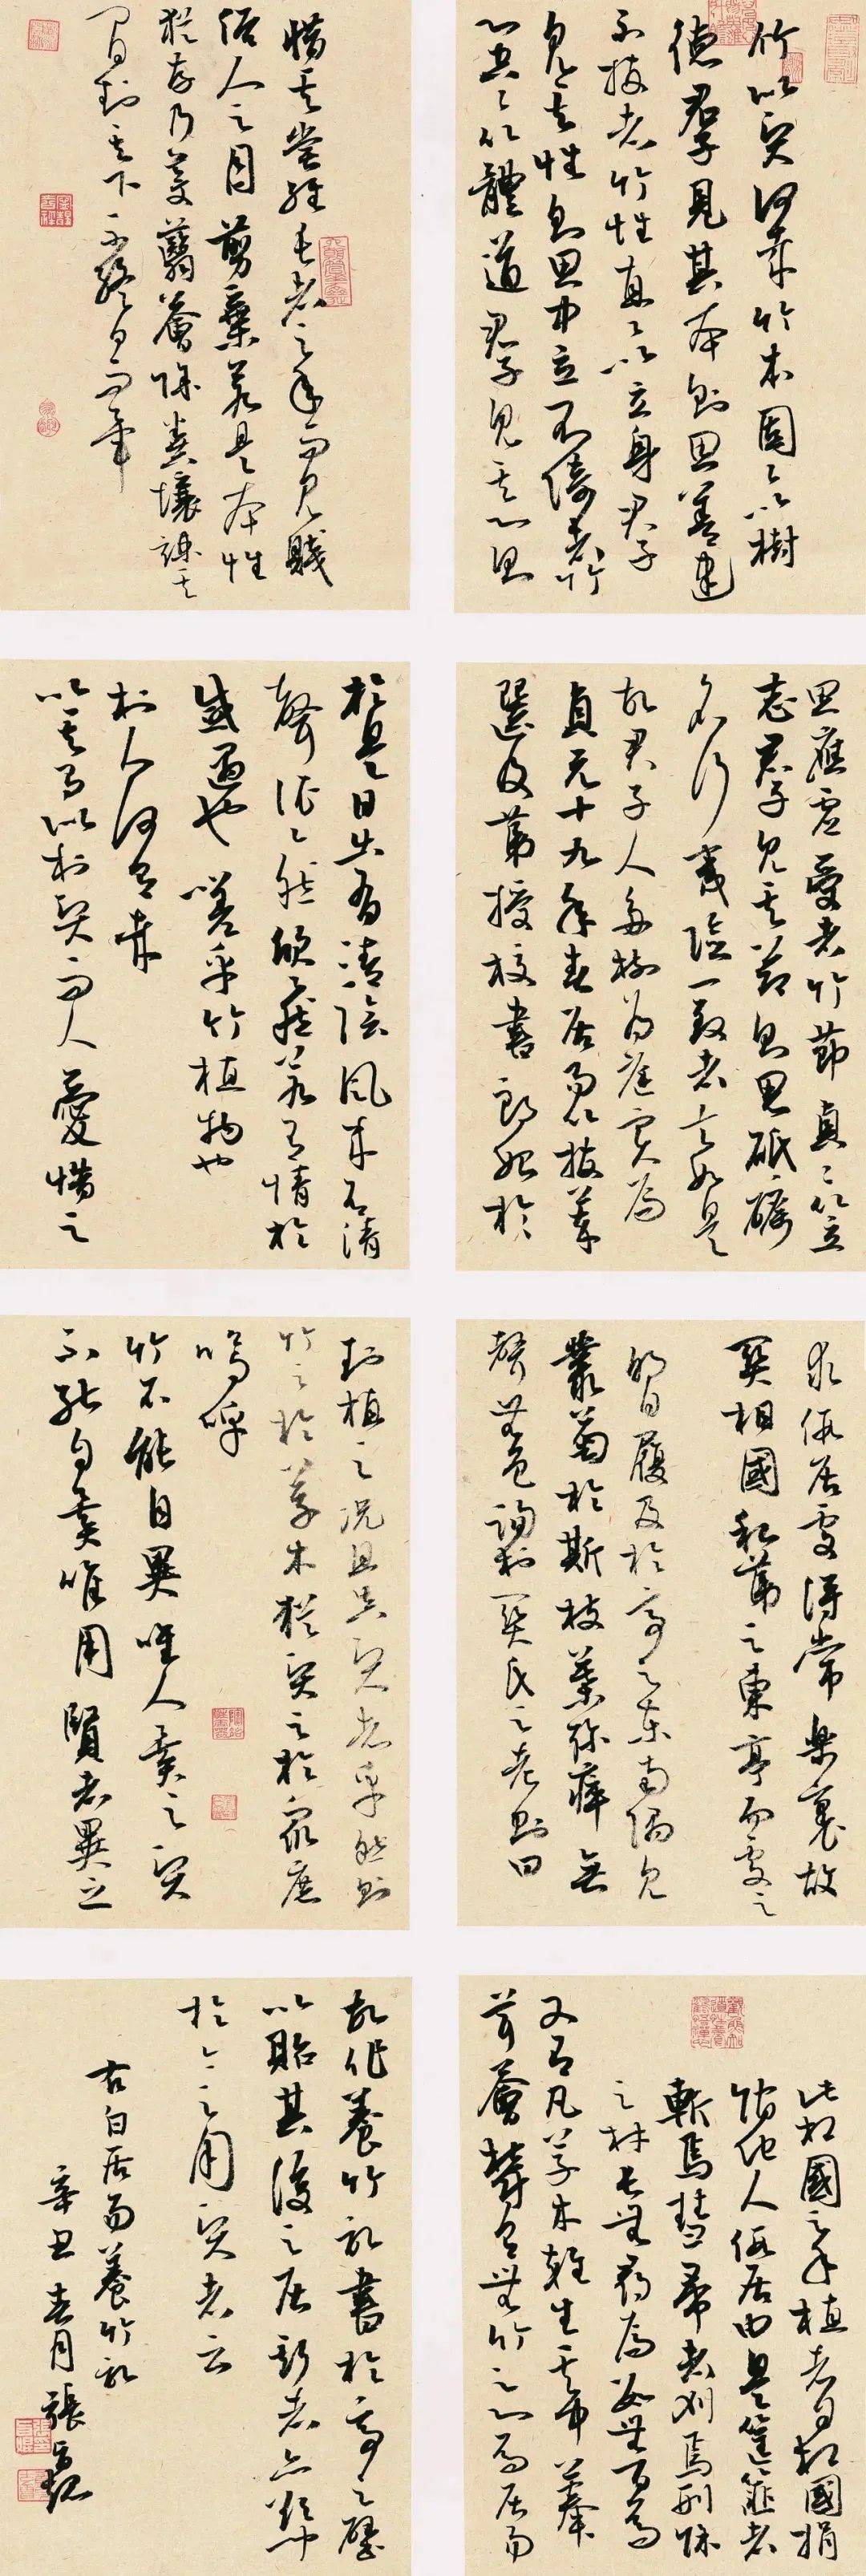 竹似賢何哉竹本固固以樹
德君子見其本則思善建
不拔者竹性直直以立身君子
見其性則思中立不倚者竹
心空空以體道君子見其心則
思應虛受者竹節貞貞以立
志君子見其節則思砥礪
名行夷險一致者夫如是
故君子人多樹為庭實焉
貞元十九年春居易以拔萃
選及第授校書郎始於
求假居處得常樂裏故
關相國私第之東亭而處之
明日履及於亭之東南隅見
叢於斯枝葉殄瘁無
聲無色詢於關氏之老則曰
此相國之手植者自相國捐
館他人假居由是筐篚者
斬焉彗帚者刈焉刑餘
之材長無尋焉數無百焉
又有凡草木雜生其中菶
茸薈鬱有無竹之心焉居易
惜其嘗經長者之手而見賤
俗人之目剪棄若是本性
猶存乃芟蘙薈除糞壤疏其
間封其下不終日而畢
於是日出有清陰風來有清
聲依依然欣欣然若有情於
感遇也嗟乎竹植物也
於人何有哉
以其有似於賢而人愛惜之
封植之況且其賢者乎然則
竹之於草木猶賢之於眾庶
嗚呼
竹不能自異唯人異之賢
不能自異唯用賢者異之
故作養竹記書於亭之壁
以貽其後之居斯者亦欲聞
於今之用賢者云
右白居易養竹記
辛丑春月張